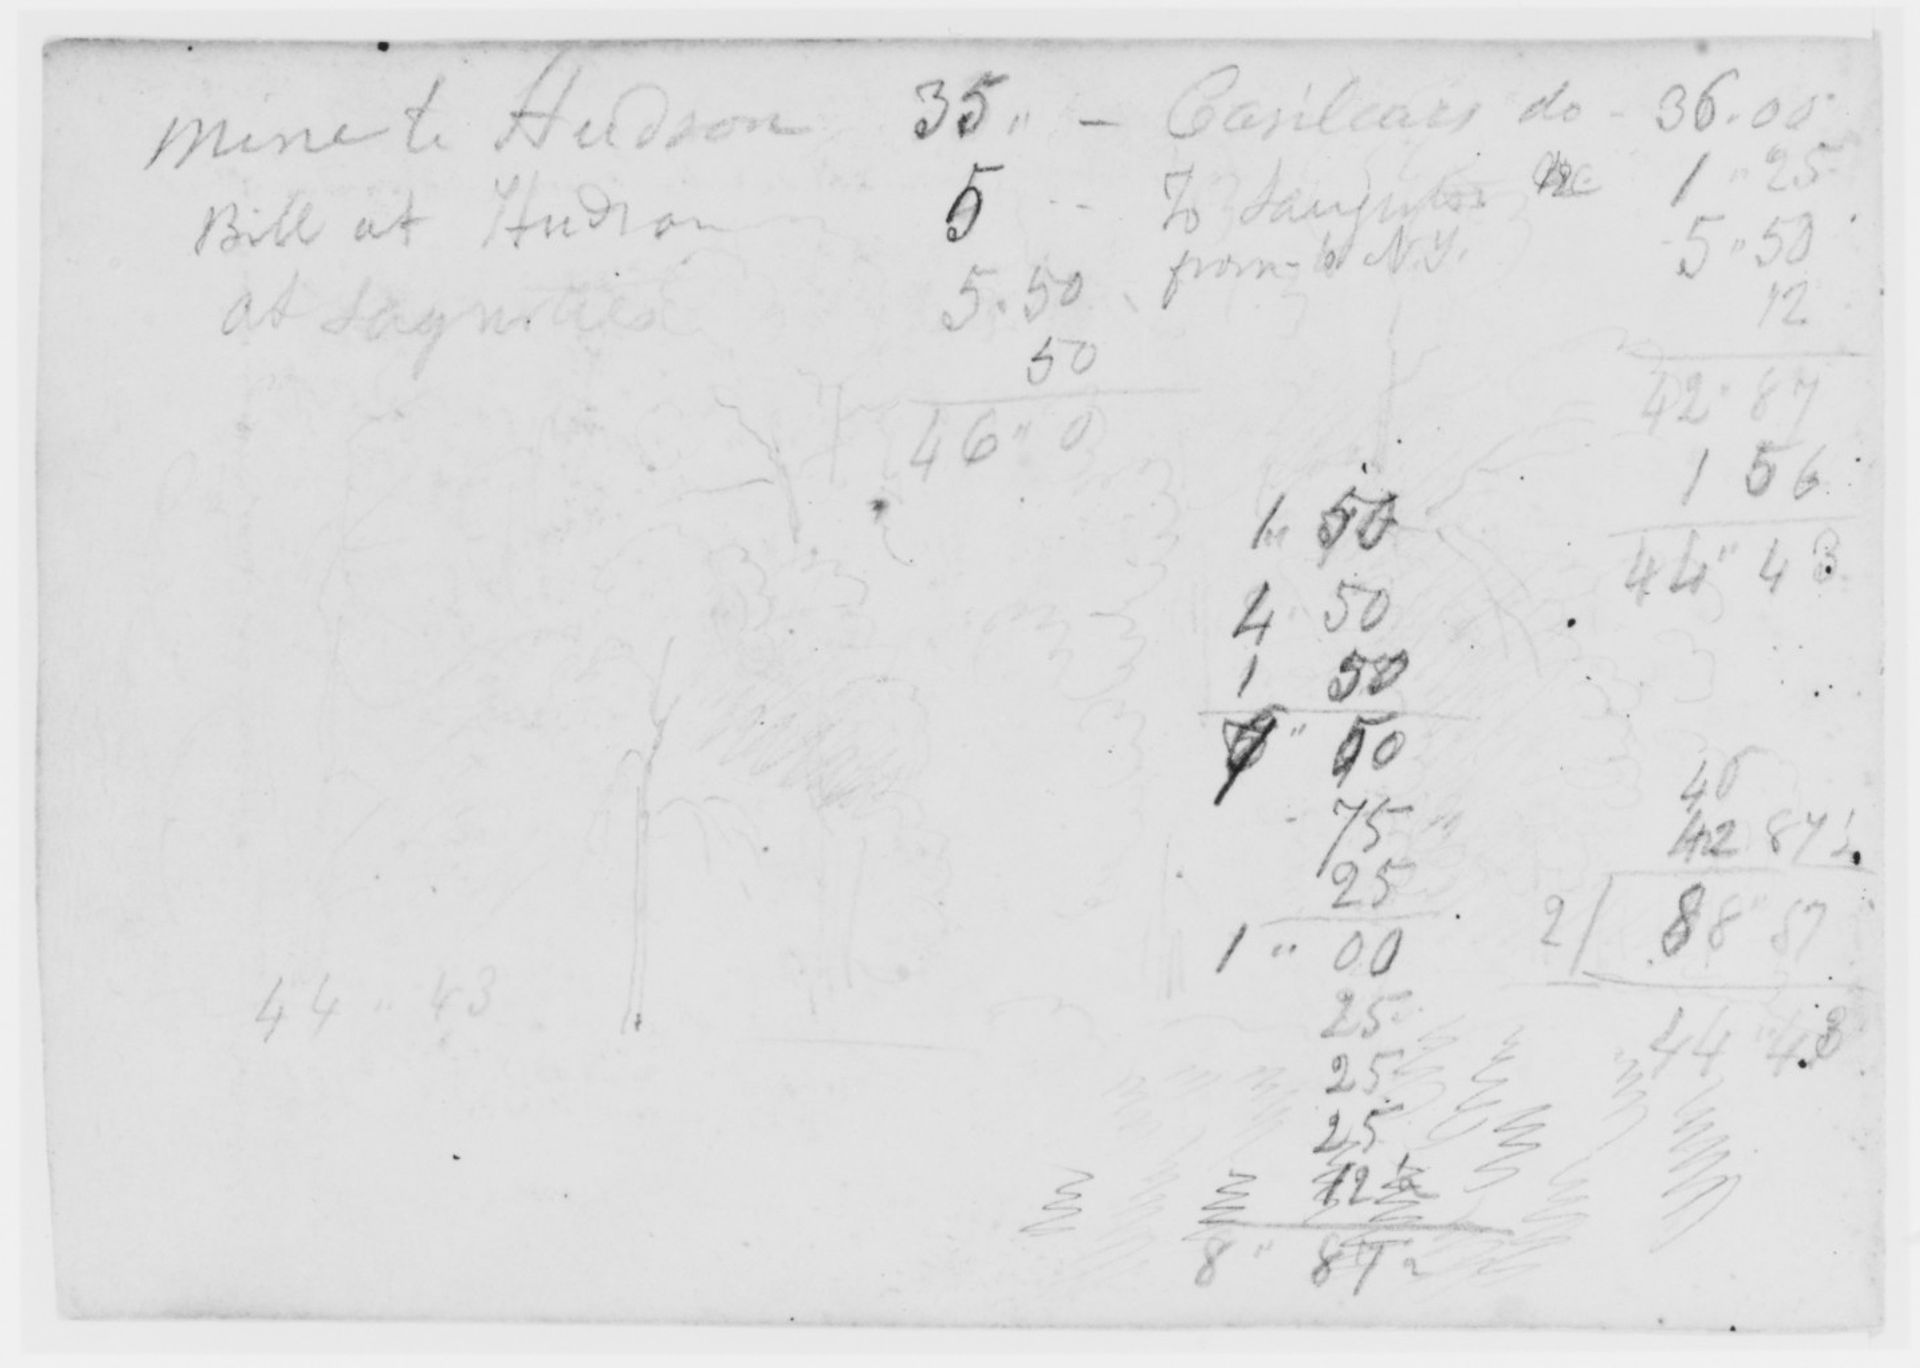 Mine to Hudson 35 " - Casilears do - 36.00
Bill at Hudson 5 -- To Saugerties 1 " 25
from to N.Y. 5 " 50
at Saugerties 5.50
12
50
46 " 0
42 . 87
1 56
44 " 43
1 " 50
4 50
1 50
" 50
75
25
1 " 00
25
25
25
12 1/2
8 " 87
42 87 1/2
2 88 " 87
44 " 43
44 " 43